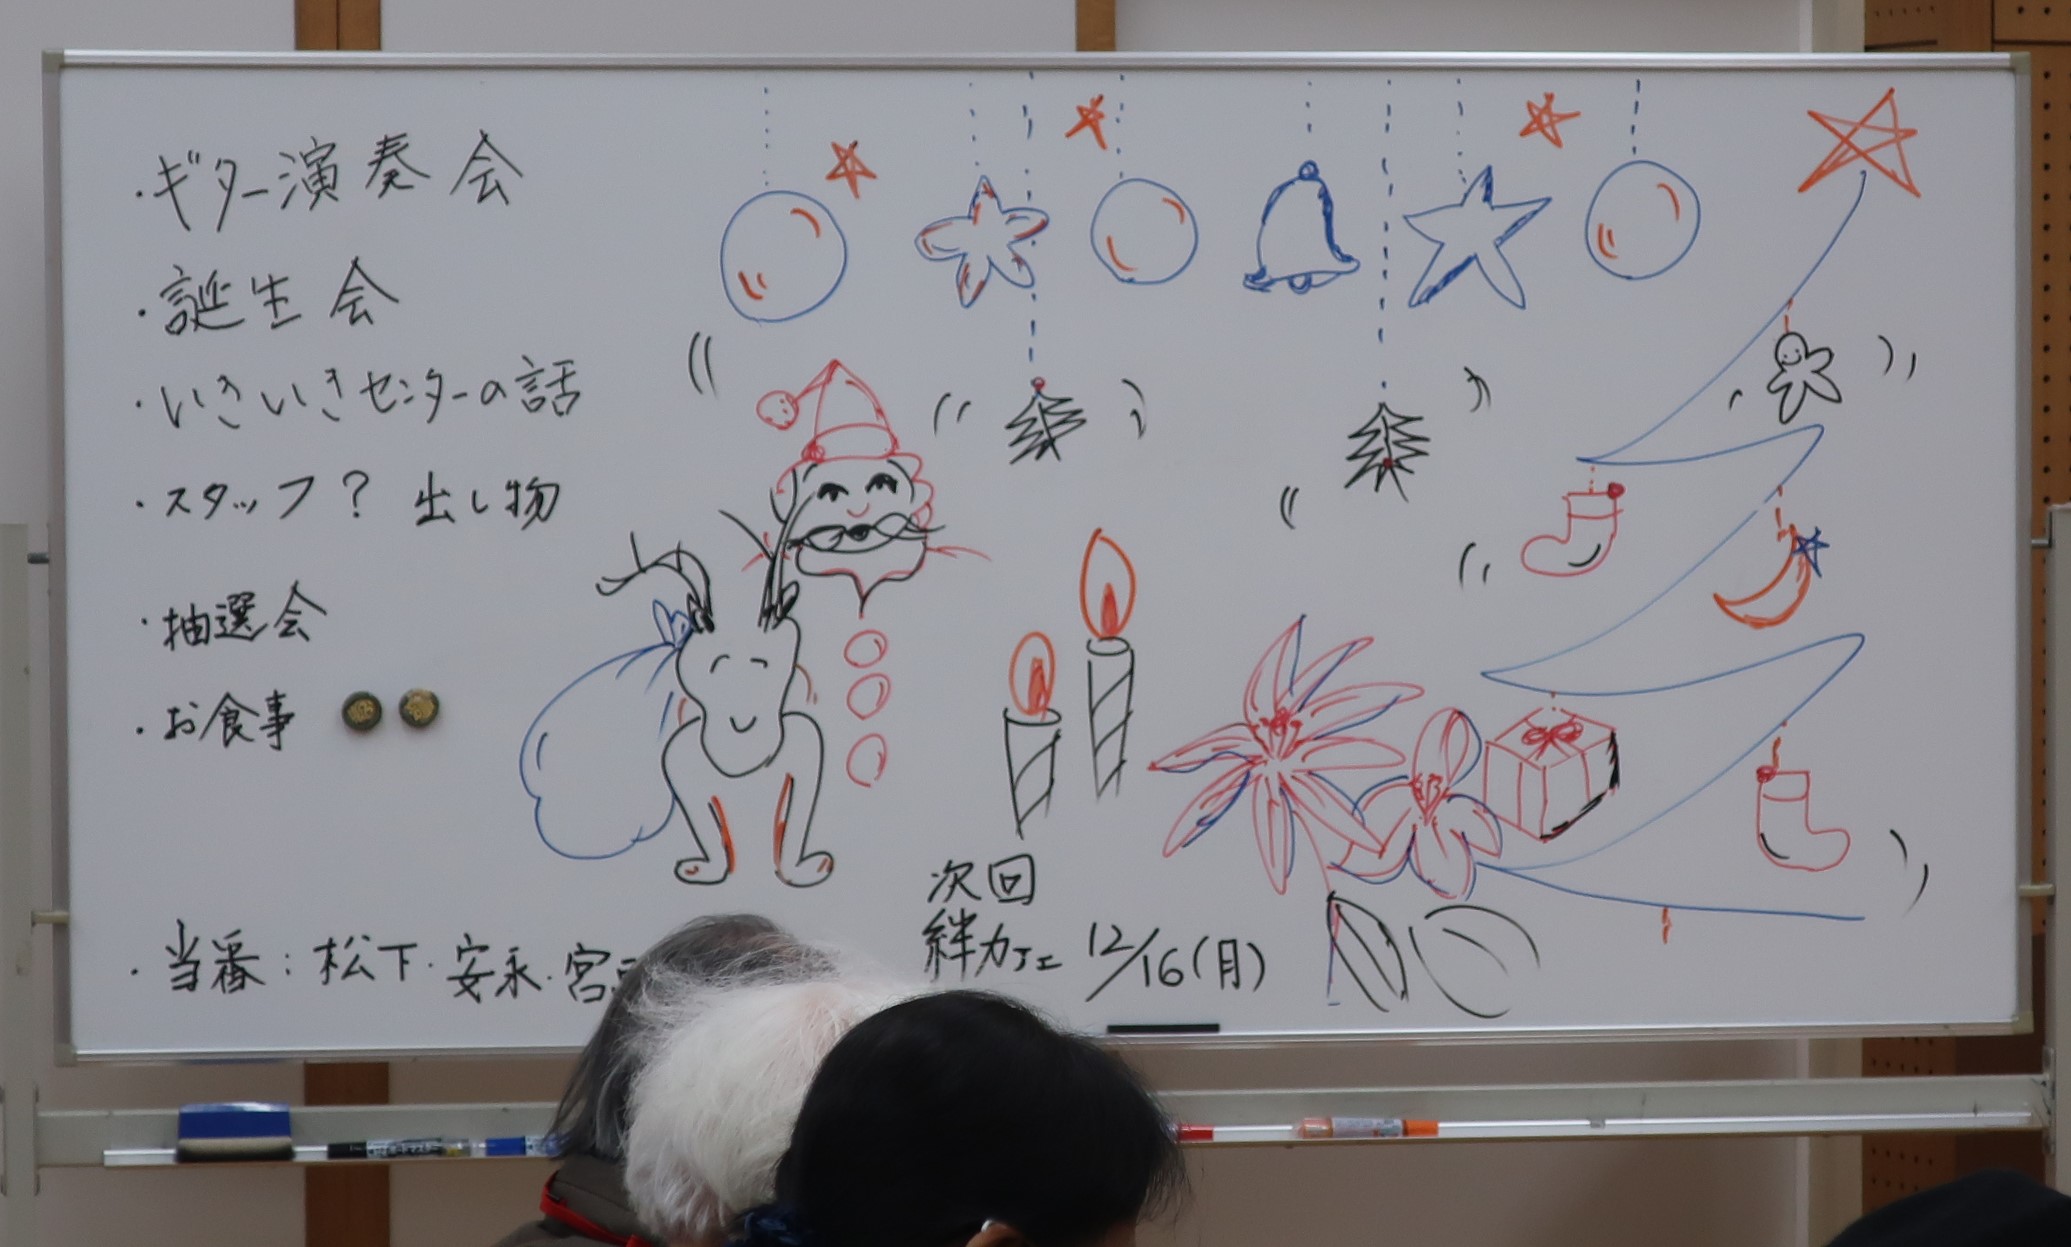 ・ギター演奏会
・誕生会
・いきいきセンターの話
・スタッフ？ 出し物
・抽選会
・お食事
・当番：松下・安永・宮
次回
絆カフェ 12/16(月)